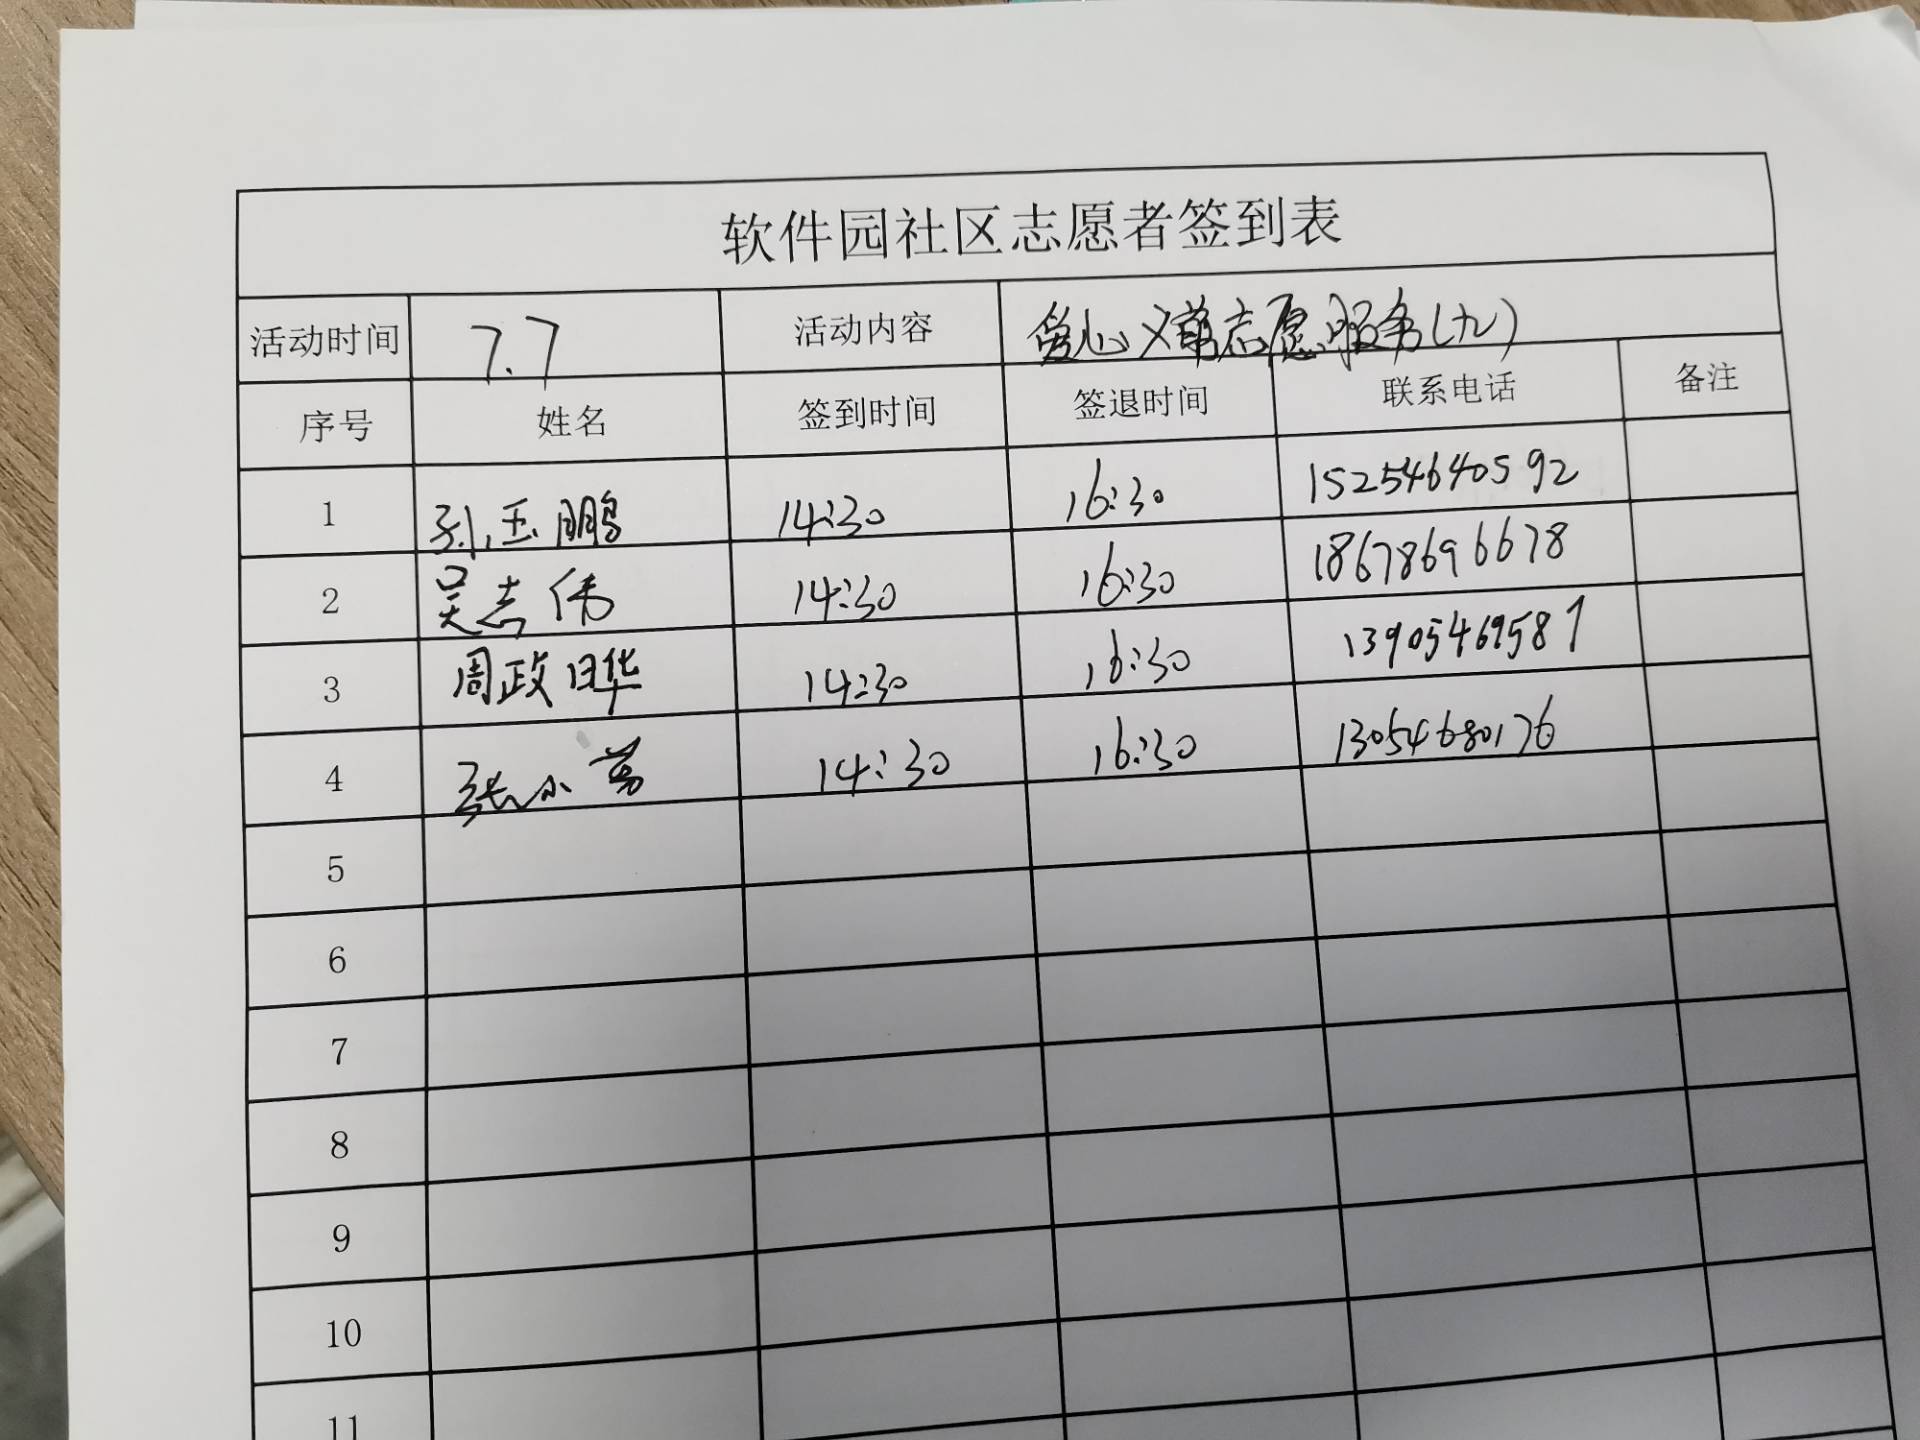 软件园社区志愿者签到表
活动时间 7.7 活动内容 爱心义剪志愿服务(九)
序号 姓名 签到时间 签退时间 联系电话 备注
1 孙玉鹏 14:30 16:30 15254640592
2 吴志伟 14:30 16:30 18678696678
3 周政晔 14:30 16:30 13905469587
4 张小 14:30 16:30 13054680176
5
6
7
8
9
10
11